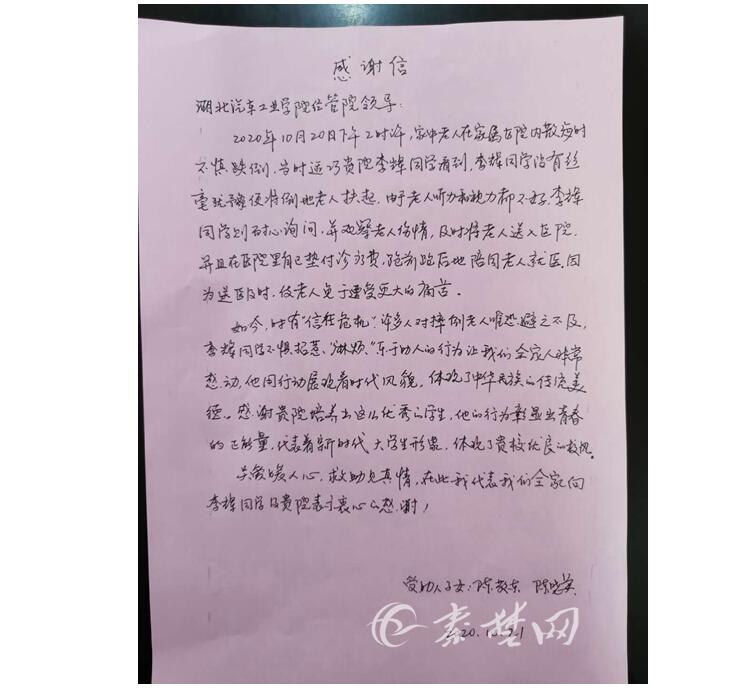 感谢信
湖北汽车工业学院经管院领导:
2020年10月20日下午2时许,家中老人在家属区院内散步时
不慎跌倒,当时适巧贵院李嶂同学看到,李嶂同学没有丝
毫犹豫便将倒地老人扶起,由于老人听力和视力都不好,李嶂
同学则耐心询问,并观察老人伤情,及时将老人送入医院,
并且在医院里自己垫付诊疗费,跑前跑后地陪同老人就医,因
为送医及时,使老人免于遭受更大的痛苦。
如今,时有"信任危机",许多人对摔倒老人唯恐避之不及,
李嶂同学不惧招惹"麻烦",乐于助人的行为让我们全家人非常
感动,他用行动展现着时代风貌,体现了中华民族的传统美
德。感谢贵院培养出这么优秀的学生,他的行为彰显出青春
的正能量,代表着新时代大学生形象,体现了贵校优良的校风。
关微暖人心,救助见真情,在此我代表我们全家向
李嶂同学及贵院表示衷心的感谢!
受助人子女:陈敬东 陈晓英
2020.10.21
秦楚网